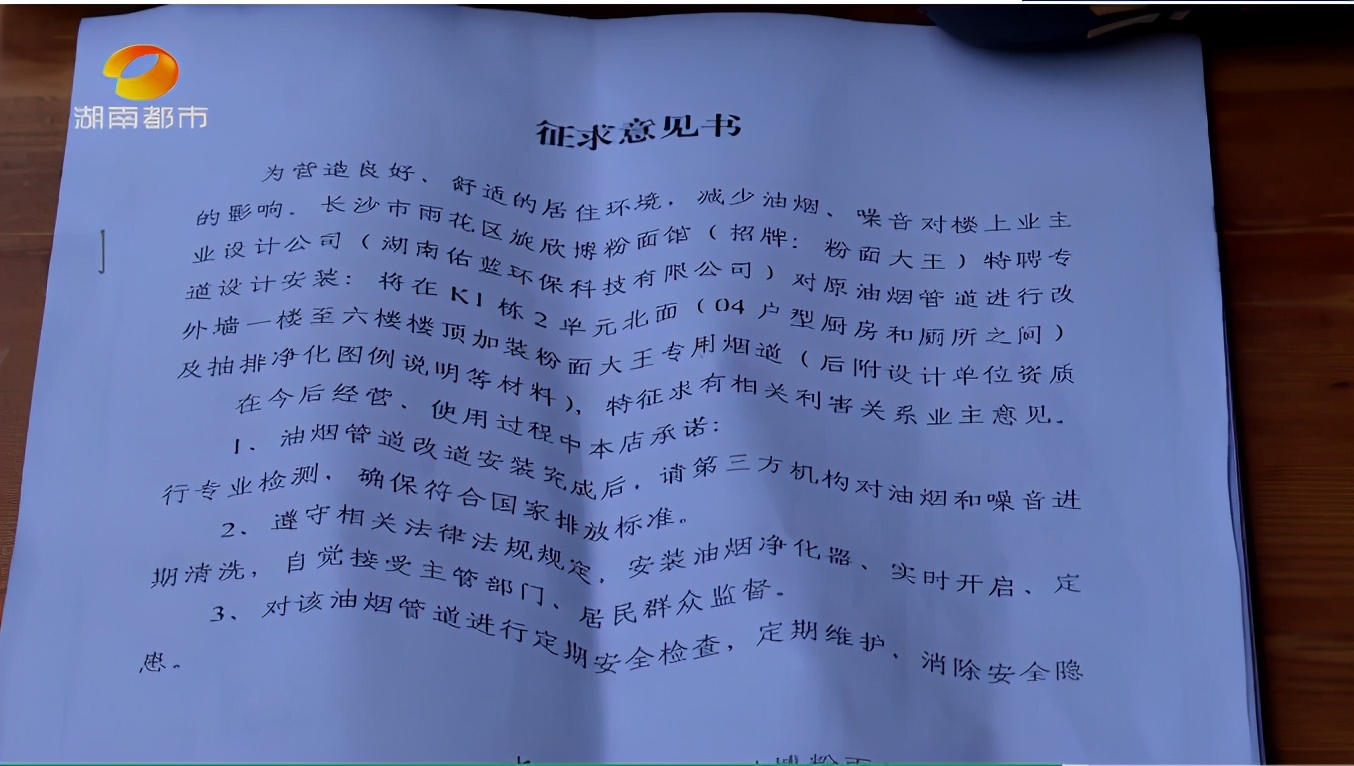 湖南都市
征求意见书
为营造良好、舒适的居住环境，减少油烟、噪音对楼上业主
的影响．长沙市雨花区旋欣博粉面馆（招牌：粉面大王）特聘专
业设计公司（湖南佑蓝环保科技有限公司）对原油烟管道进行改
道设计安装：将在K1栋2单元北面（04户型厨房和厕所之间）
外墙一楼至六楼楼顶加装粉面大王专用烟道（后附设计单位资质
及抽排净化图例说明等材料），特征求有相关利害关系业主意见。
在今后经营、使用过程中本店承诺：
1、油烟管道改道安装完成后，请第三方机构对油烟和噪音进
行专业检测，确保符合国家排放标准。
2、遵守相关法律法规规定，安装油烟净化器、实时开启、定
期清洗，自觉接受主管部门、居民群众监督。
3、对该油烟管道进行定期安全检查，定期维护、消除安全隐
患。
博粉面